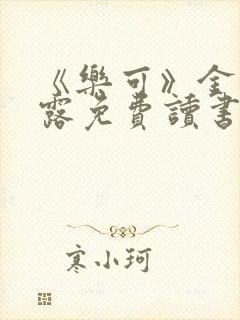 《樂可》金
露免費讀書
寒小珂